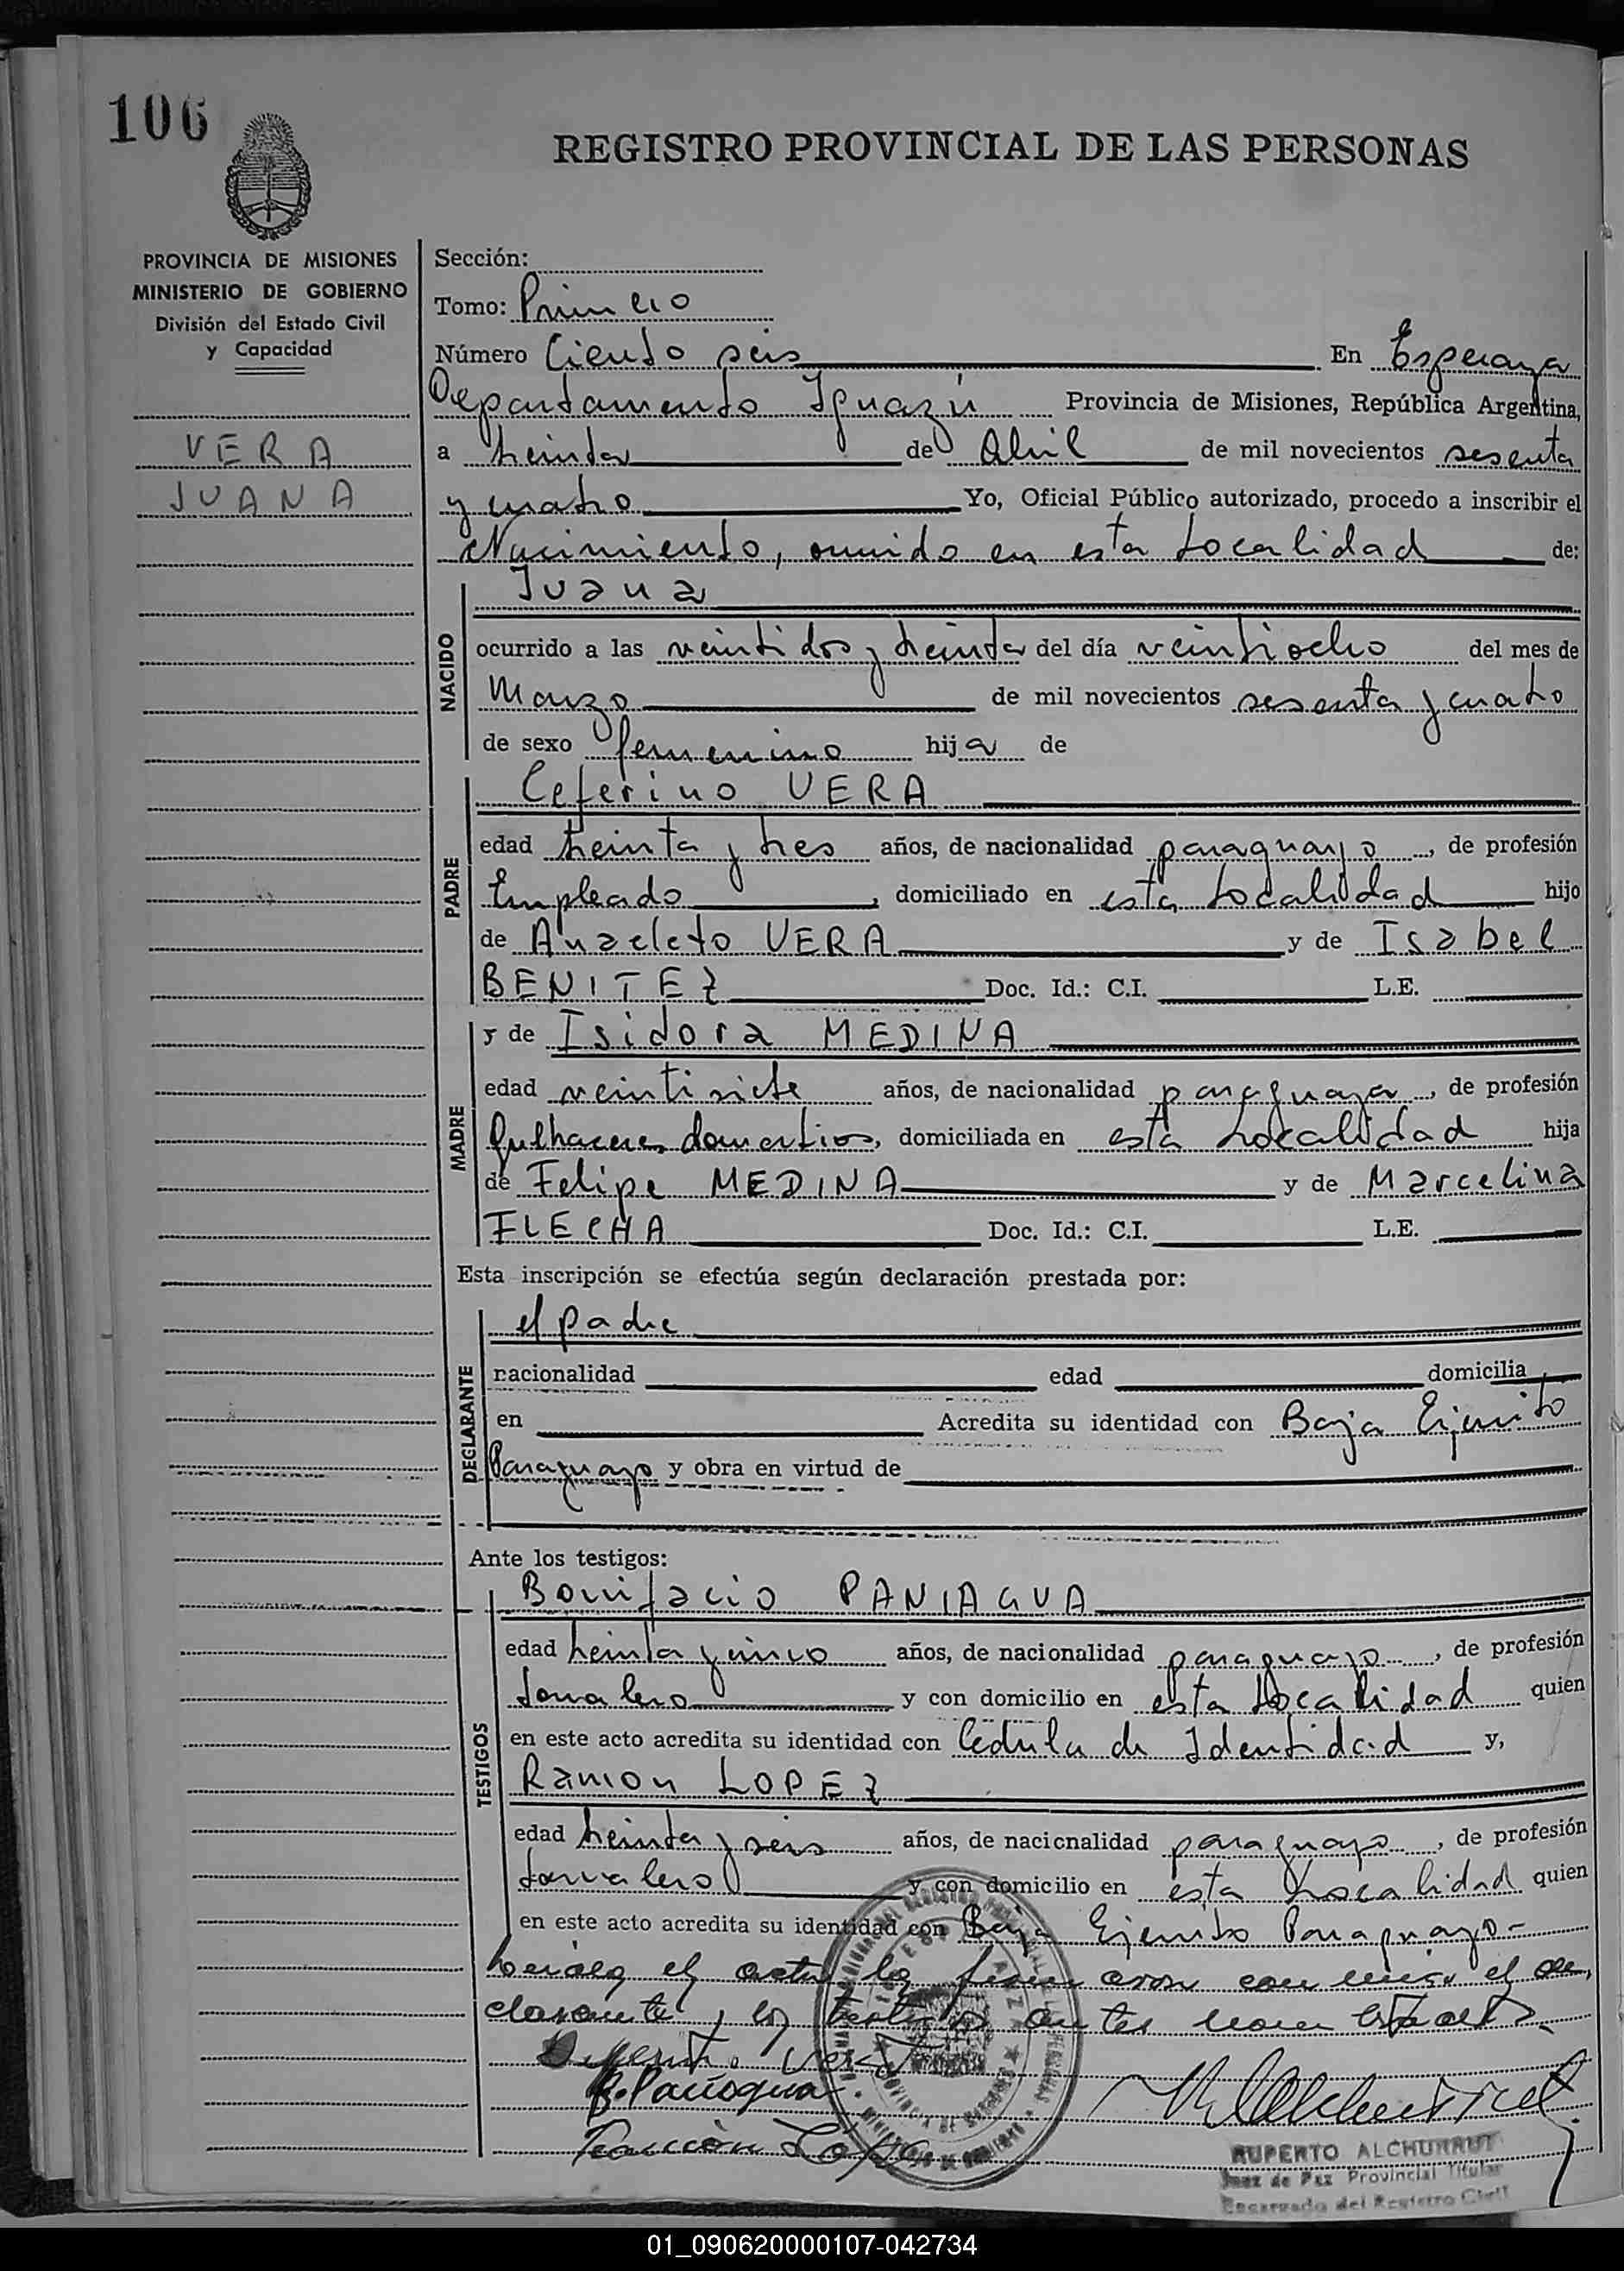 106
REGISTRO PROVINCIAL DE LAS PERSONAS
PROVINCIA DE MISIONES
MINISTERIO DE GOBIERNO
División del Estado Civil
y Capacidad
VERA
JUANA
Sección:
Tomo: Primero
Número Ciento seis En Esperanza
Departamento Iguazú Provincia de Misiones, República Argentina,
a treinta de Abril de mil novecientos sesenta
y cuatro Yo, Oficial Público autorizado, procedo a inscribir el
Nacimiento, ocurrido en esta Localidad de:
NACIDO
Juana
ocurrido a las veintidos y treinta del día veintiocho del mes de
Marzo de mil novecientos sesenta y cuatro
de sexo femenino hija de
PADRE
Ceferino VERA
edad treinta y tres años, de nacionalidad paraguayo, de profesión
Empleado, domiciliado en esta Localidad hijo
de Anacleto VERA y de Isabel
BENITEZ Doc. Id.: C.I. L.E.
MADRE
y de Isidora MEDINA
edad veintisiete años, de nacionalidad paraguaya, de profesión
Quehaceres domesticos, domiciliada en esta Localidad hija
de Felipe MEDINA y de Marcelina
FLECHA Doc. Id.: C.I. L.E.
Esta inscripción se efectúa según declaración prestada por:
DECLARANTE
el padre
nacionalidad edad domicilia
en Acredita su identidad con Baja Ejercito
Paraguayo y obra en virtud de
Ante los testigos:
TESTIGOS
Bonifacio PANIAGUA
edad treinta y cinco años, de nacionalidad paraguayo, de profesión
Jornalero y con domicilio en esta Localidad quien
en este acto acredita su identidad con Cédula de Identidad y,
Ramon LOPEZ
edad treinta y seis años, de nacionalidad paraguayo, de profesión
Jornalero y con domicilio en esta Localidad quien
en este acto acredita su identidad con Baja Ejercito Paraguayo-
Leída el acta la firmaron conmigo el de,
clarante y los testigos antes
Vera
B. Paniagua.
Ramón López
RUPERTO ALCHURRUT
Juez de Paz Provincial Titular
Encargado del Registro Civil
01_090620000107-042734